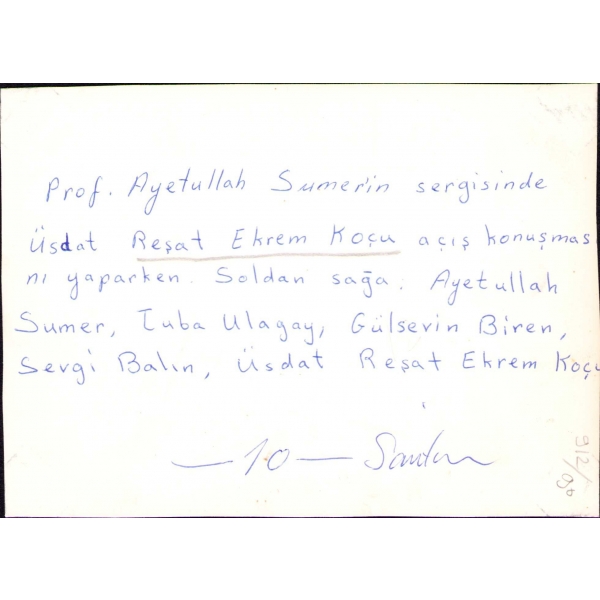 Prof. Ayetullah Sumer'in sergisinde
Üsdat Reşat Ekrem Koçu açış konuşmas
nı yaparken. Soldan sağa: Ayetullah
Sumer, Tuba Ulagay, Gülsevin Biren,
Sevgi Balın, Üsdat Reşat Ekrem Koçu
— 10 —
912/98